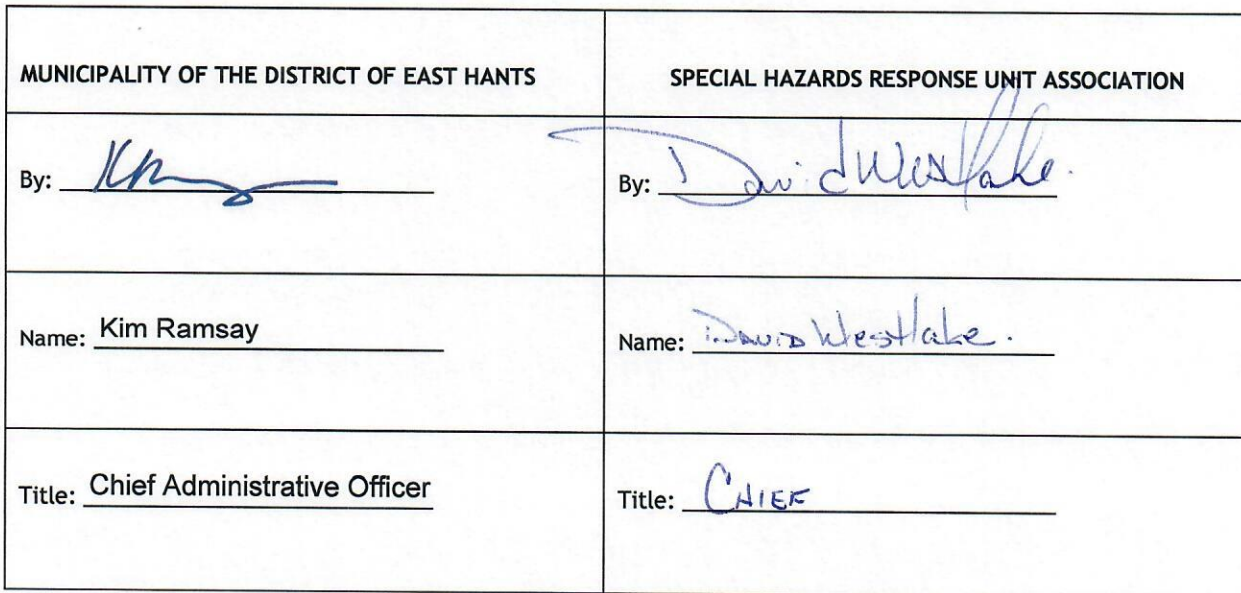 MUNICIPALITY OF THE DISTRICT OF EAST HANTS
SPECIAL HAZARDS RESPONSE UNIT ASSOCIATION
By:
By: David Westlake.
Name: Kim Ramsay
Name: David Westlake.
Title: Chief Administrative Officer
Title: CHIEF